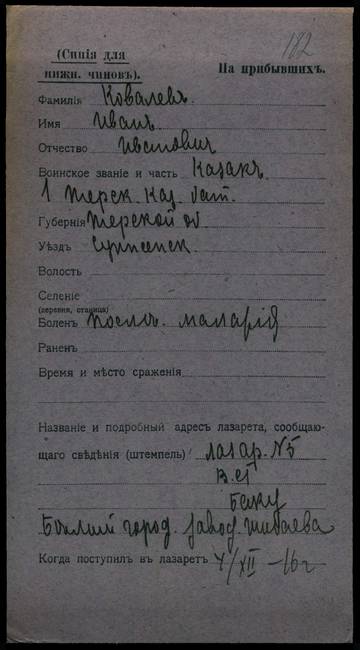 182
(Синія для
нижн. чиновъ).
На прибывшихъ.
Фамилія Ковалевъ.
Имя Иванъ
Отчество Ивановичъ
Воинское званіе и часть Казакъ
1 Терск. Каз. бат.
Губернія Терской об
Уѣздъ
Волость
Селеніе
(деревня, станица)
Боленъ послѣ маларія
Раненъ
Время и мѣсто сраженія
Названіе и подробный адресъ лазарета, сообщаю-
щаго свѣдѣнія (штемпель) лазар. №5
В.С.Г
Баку
Бѣлый город. завод. Шибаева
Когда поступилъ въ лазаретъ 4/XII -16 г